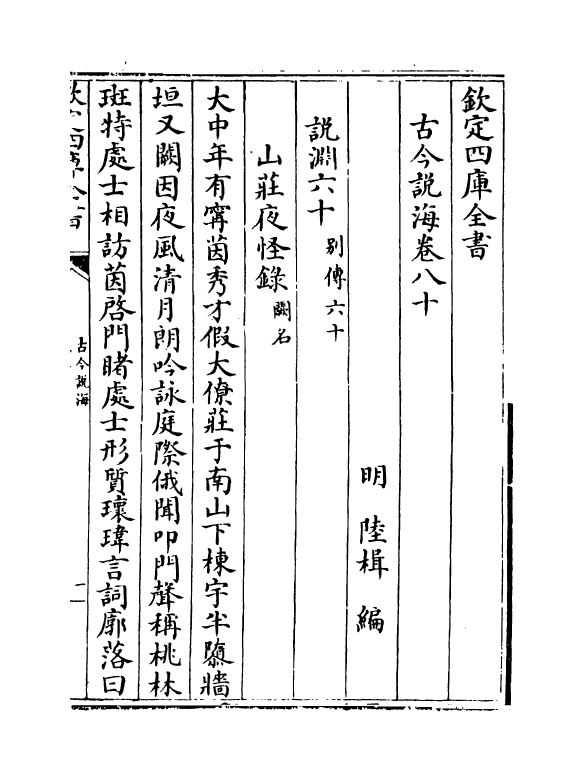 欽定四庫全書
古今説海卷八十
明 陸楫 編
説淵六十 别傳六十
山莊夜怪錄 闕名
大中年有寗茵秀才假大僚莊于南山下棟宇半隳牆
垣又闕因夜風清月朗吟詠庭際俄聞叩門聲稱桃林
斑特處士相訪茵啓門睹處士形質瓌瑋言詞廓落曰
古今説海